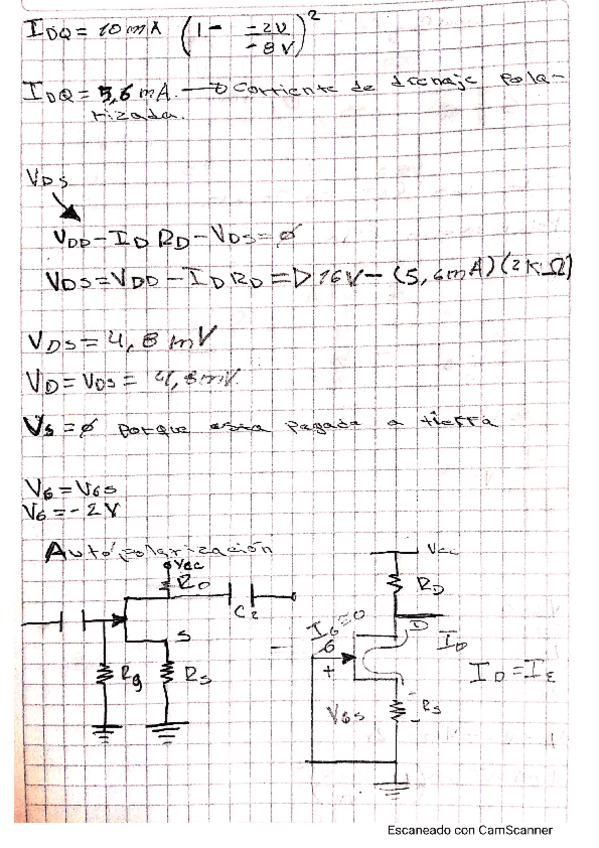 IDQ = 10 mA (1 - -2V / -8V)²
IDQ = 5,6 mA. → Corriente de drenaje pola-
rizada.
VDS
VDD - ID RD - VDS = ø
VDS = VDD - ID RD => 16V - (5,6mA)(2KΩ)
VDS = 4,8 mV
VD = VDS = 4,8mV.
VS = ø porque esta pegada a tierra
VG = VGS
VG = -2V
Autopolarización
Vcc
RD
C2
S
Rg
Rs
Vcc
RD
D
IG=0
G
ID
ID = IE
+
VGS
Rs
Escaneado con CamScanner